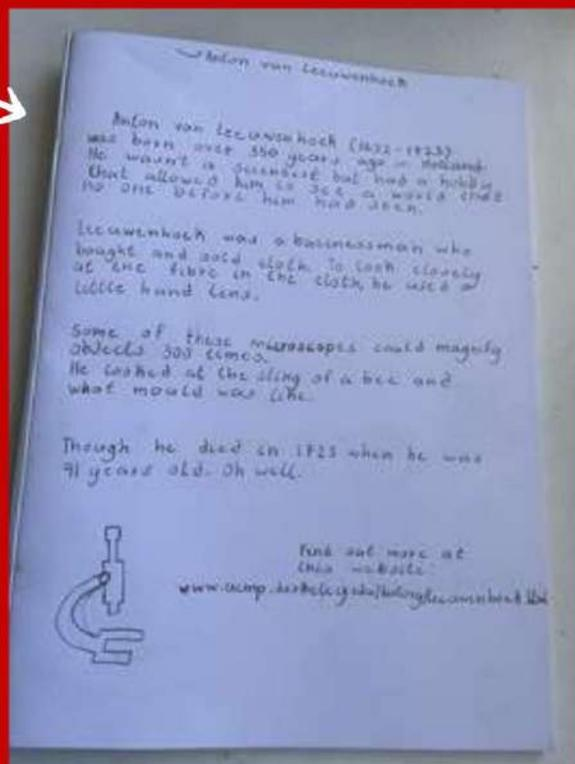 Anton van Leeuwenhoek
Anton van Leeuwenhoek (1632-1723)
was born over 350 years ago in Holland.
He wasn't a scientist but had a hobby
that allowed him to see a world that
no one before him had seen.
Leeuwenhoek was a businessman who
bought and sold cloth. To look closely
at the fibre in the cloth, he used a
little hand lens.
Some of these microscopes could magnify
objects 300 times.
He looked at the sting of a bee and
what mould was like.
Though he died in 1723 when he was
91 years old. Oh well.
Find out more at
this website
www.ucmp.berkeley.edu/history/leeuwenhoek.html